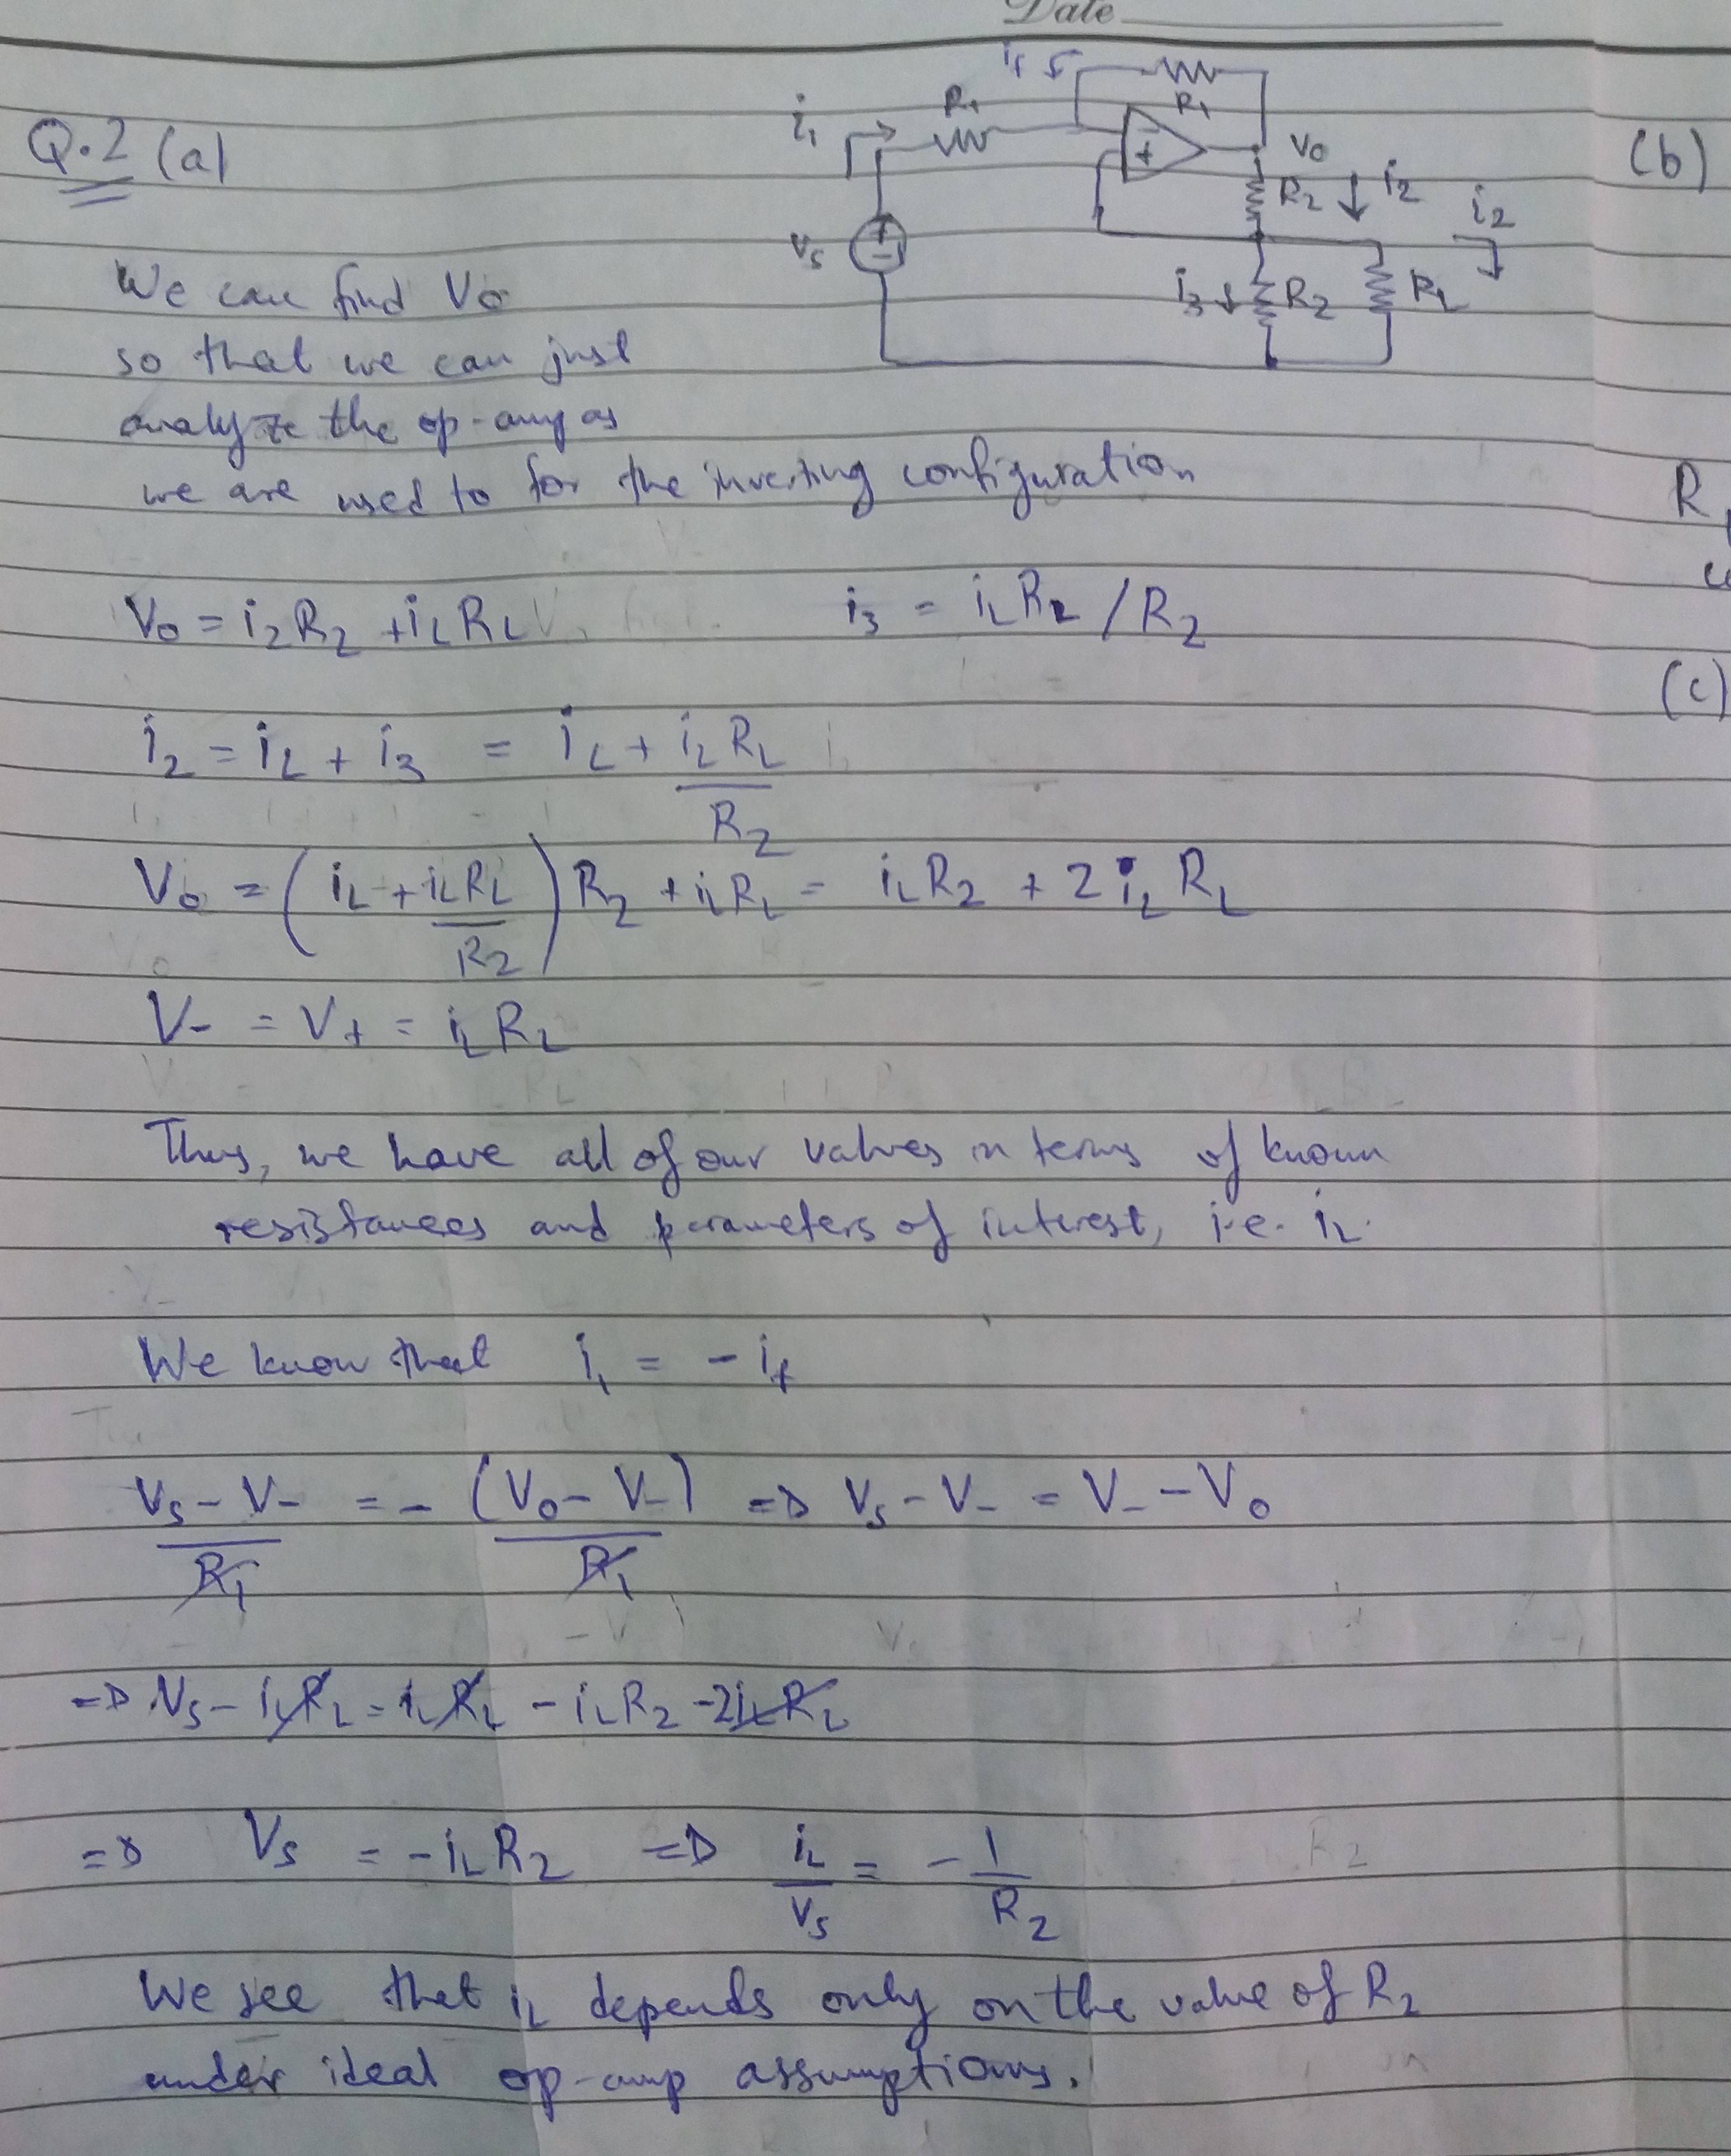 Date
Q.2 (a)
i₁
R₁
i_f
R₁
V₀
R₂
i₂
i₂
V_s
i₃
R₂
R_L
(b)
We can find V₀
so that we can just
analyze the op-amp as
we are used to for the inverting configuration
R
V₀ = i₂R₂ + i_L R_L
i₃ = i_L R_L / R₂
(c)
i₂ = i_L + i₃ = i_L + i_L R_L / R₂
V₀ = (i_L + i_L R_L / R₂) R₂ + i_L R_L = i_L R₂ + 2 i_L R_L
V₋ = V₊ = i_L R_L
Thus, we have all of our values in terms of known
resistances and parameters of interest, i.e. i_L.
We know that i₁ = - i_f
(V_s - V₋) / R₁ = - (V₀ - V₋) / R₁ => V_s - V₋ = V₋ - V₀
=> V_s - i_L R_L = i_L R_L - i_L R₂ - 2 i_L R_L
=> V_s = - i_L R₂ => i_L / V_s = - 1 / R₂
We see that i_L depends only on the value of R₂
under ideal op-amp assumptions.